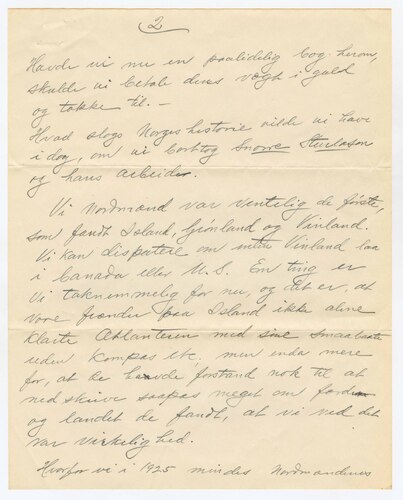 2
Havde vi nu en paalidelig bog herom,
skulde vi betale deres vægt i guld
og takke til. —
Hvad slags Norges historie vilde vi have
i dag, om vi borttog Snorre Sturlason
og hans arbeide.
Vi Nordmænd var ventelig de første,
som fandt Island, Grønland og Vinland.
Vi kan disputere om Vinland laa
i Canada eller U.S. En ting er
vi taknemmelig for nu, og det er, at
vore frænder paa Island ikke alene
klarte Atlanteren med sine smaabaate
uden kompas etc, men enda mere
for, at de havde forstand nok til at
nedskrive saapas meget om
og landet de fandt, at vi ved det
var virkelighed.
Hvorfor vi i 1925 mindes Nordmændenes